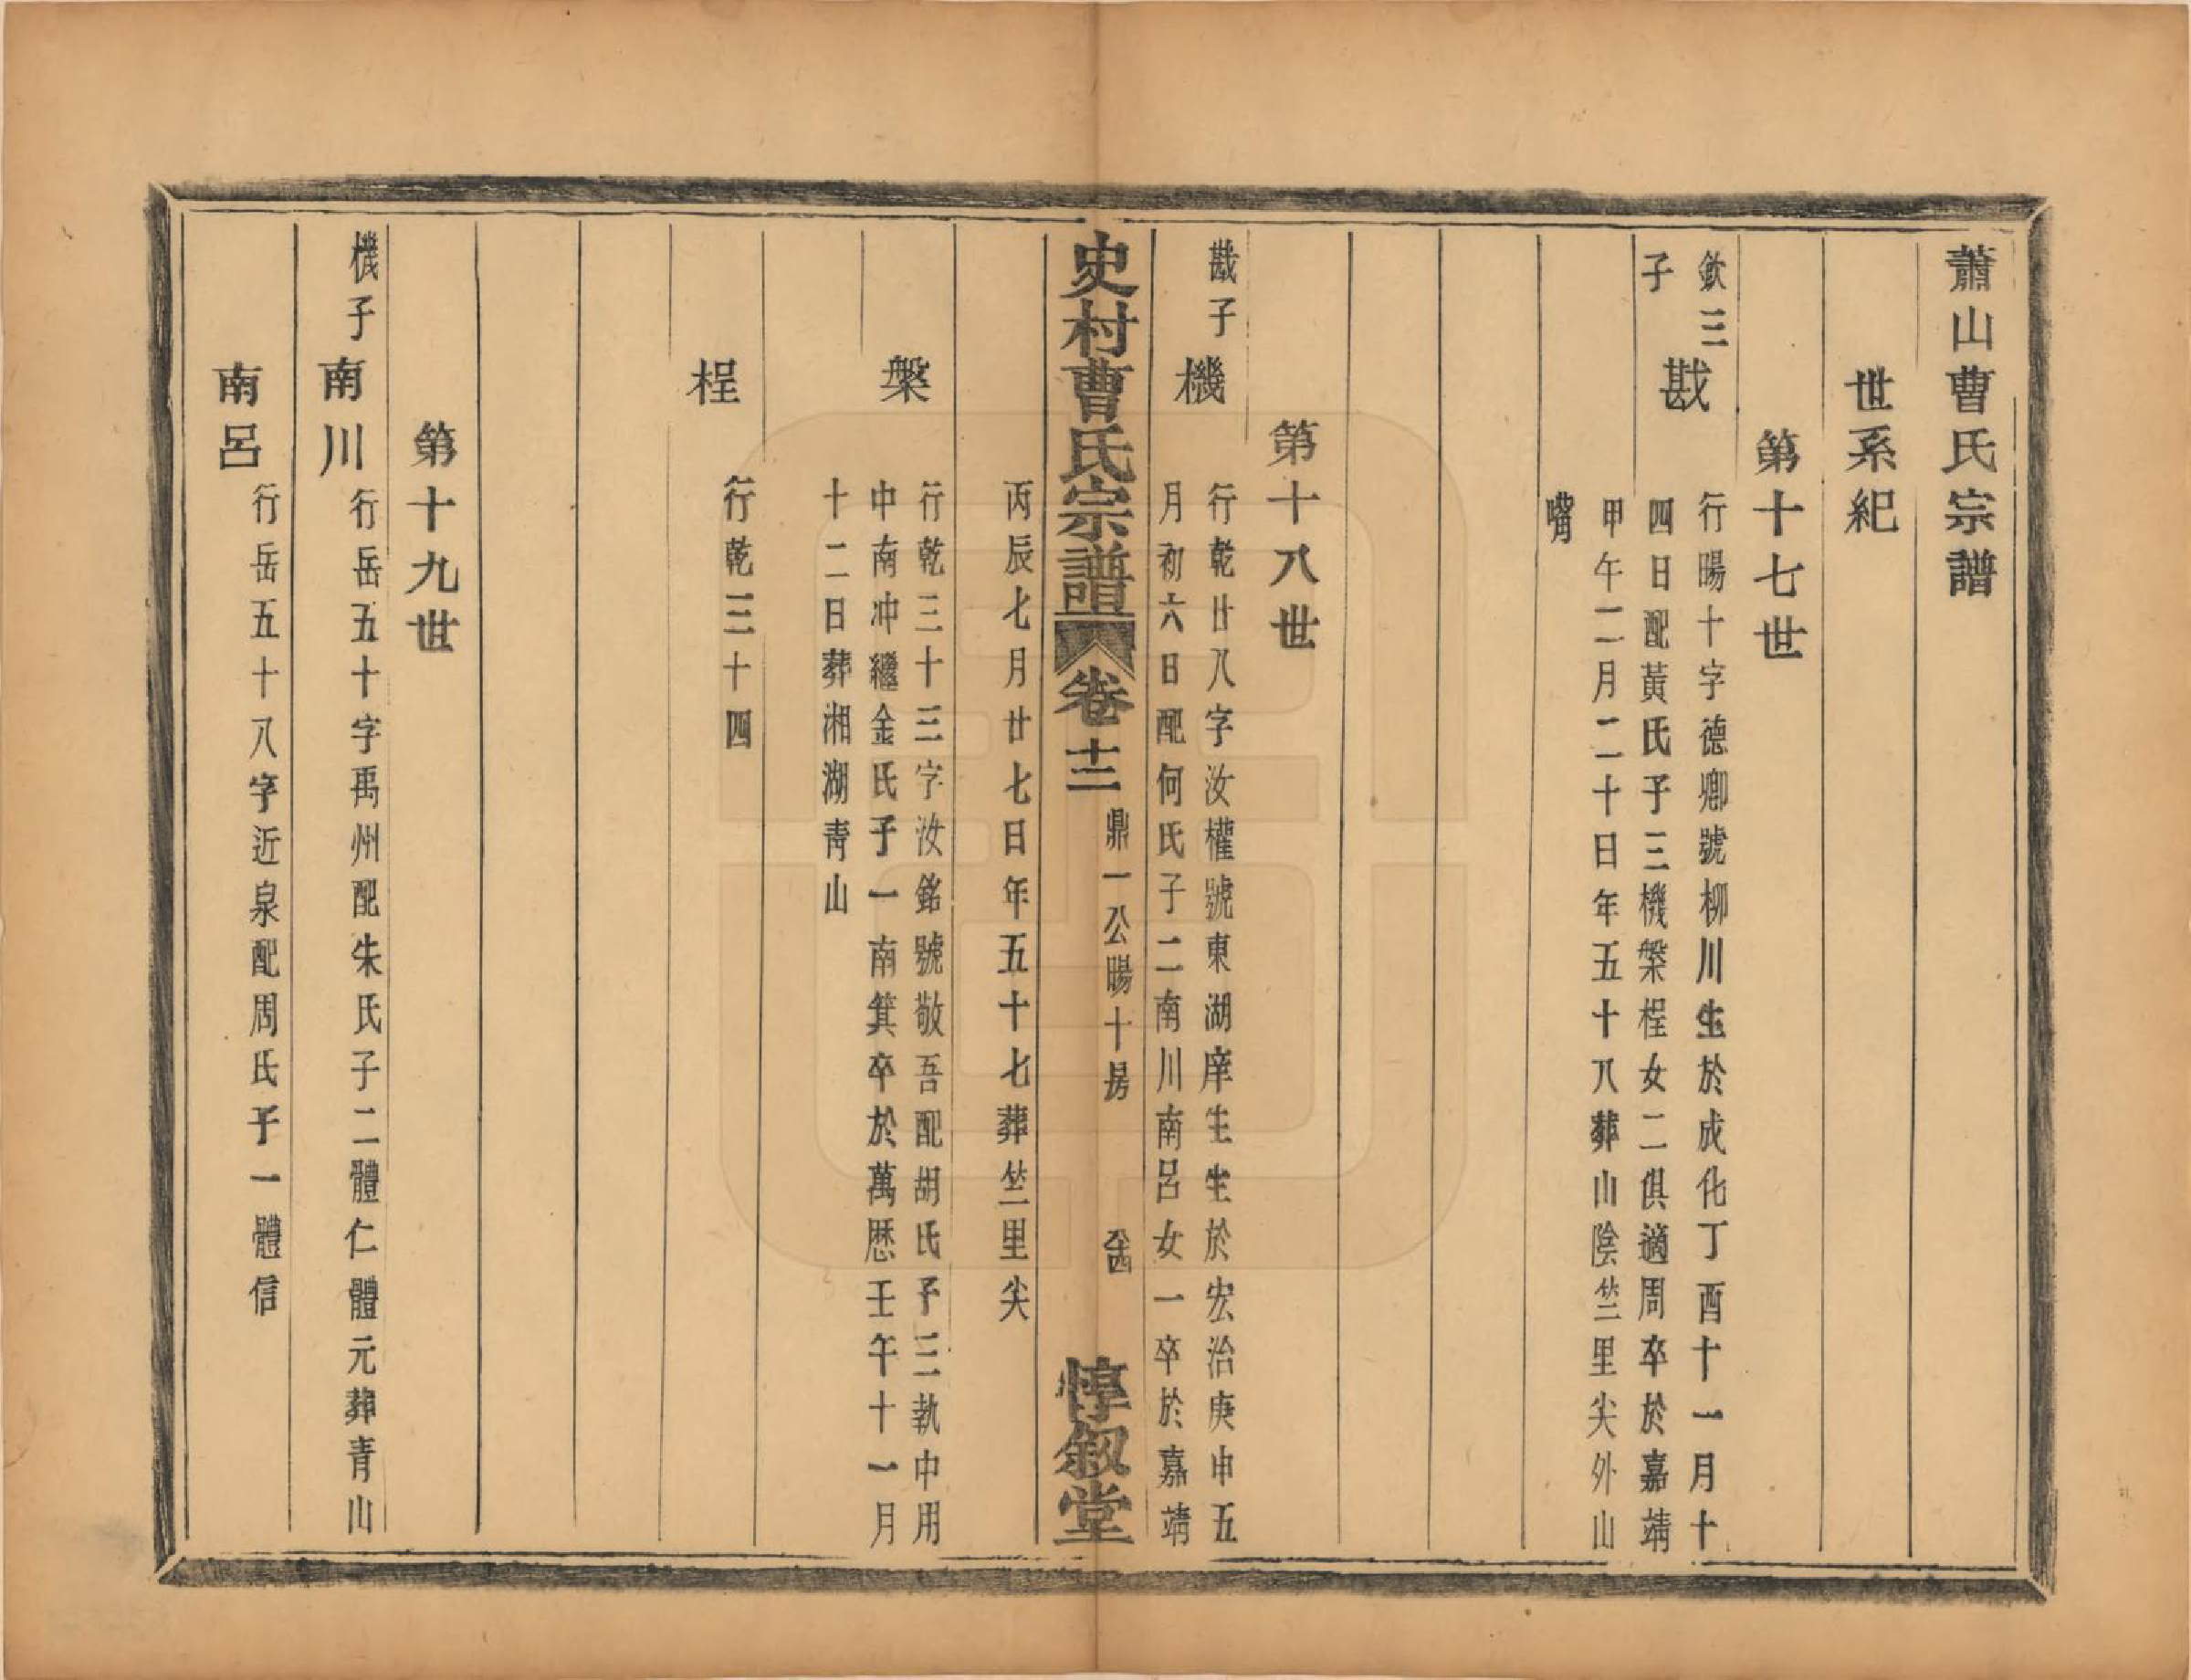 蕭山曹氏宗譜
世系紀
第十七世
欽三子
戡
行暘十字德卿號柳川生於成化丁酉十一月十
四日配黃氏子三機槃桯女二俱適周卒於嘉靖
甲午二月二十日年五十八葬山陰竺里尖外山
嘴
第十八世
戡子
機
行乾廿八字汝權號東湖庠生生於宏治庚申五
月初六日配何氏子二南川南呂女一卒於嘉靖
史村曹氏宗譜
卷十二
鼎一公暘十房
惇敘堂
丙辰七月廿七日年五十七葬竺里尖
槃
行乾三十三字汝銘號敬吾配胡氏子三執中用
中南冲繼金氏子一南箕卒於萬歷壬午十一月
十二日葬湘湖青山
桯
行乾三十四
第十九世
機子
南川
行岳五十字禹州配朱氏子二體仁體元葬青山
南呂
行岳五十八字近泉配周氏子一體信